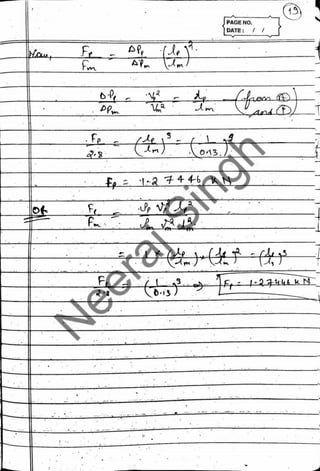 15
PAGE NO.
DATE: / /
Now, Fp/Fm = ΔPp/ΔPm · (lp/lm)².
ΔPp/ΔPm = Vp²/Vm² = lp/lm (from and ①)
Fp/2.8 = (lp/lm)³ = (1/0.13)³
Fp = 1.27446 kN
OR Fp/Fm = ρp Vp² lp²/ρm Vm² lm²
= 1 × (lp/lm) × (lp/lm)² = (lp/lm)³
Fp/2.8 = (1/0.13)³ ⇒ Fp = 1.27446 kN
Neeraj Singh